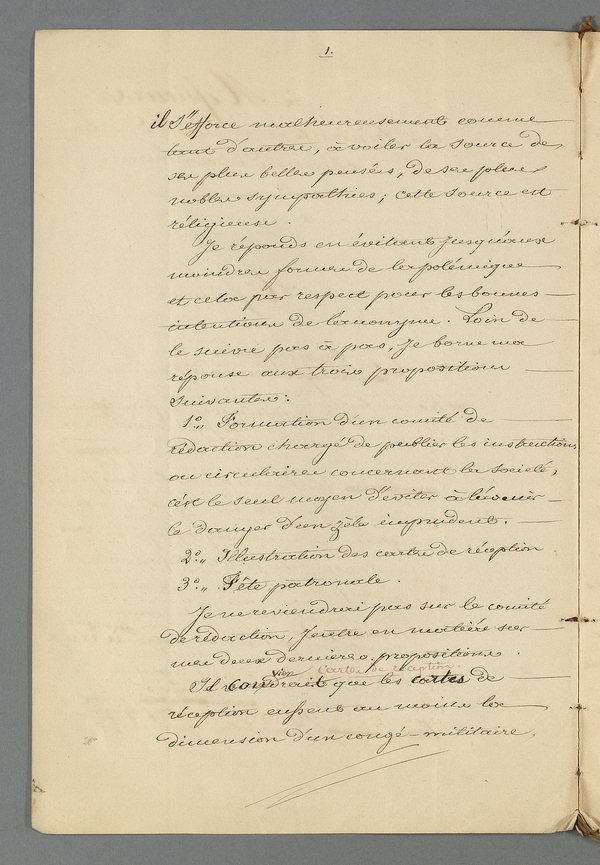 1.
il s'éfforce malheureusement comme
tant d'autres, à voiler la source de
ses plus belles pensées, de ses plus
nobles sympathies; cette source est
réligieuse.
Je réponds en évitant jusqu'aux
moindres formes de la polémique
et cela par respect pour les bonnes
intentions de l'anonyme. Loin de
le suivre pas à pas, je borne ma
réponse aux trois propositions
suivantes:
1o,, Formation d'un comité de
rédaction chargé de publier les instructions
ou circulaires concernant la societé,
c'est le seul moyen d'éviter à l'avenir
le danger d'un zèle imprudent.
2o,, Illustration des cartes de réception
3o,, Fête patronale.
Je ne reviendrai pas sur le comité
de rédaction, j'entre en matière sur
mes deux dernieres propositions.
Cartes de réception.
Il conviendrait que les cartes de
réception eussent au moins la
dimension d'un congé militaire,